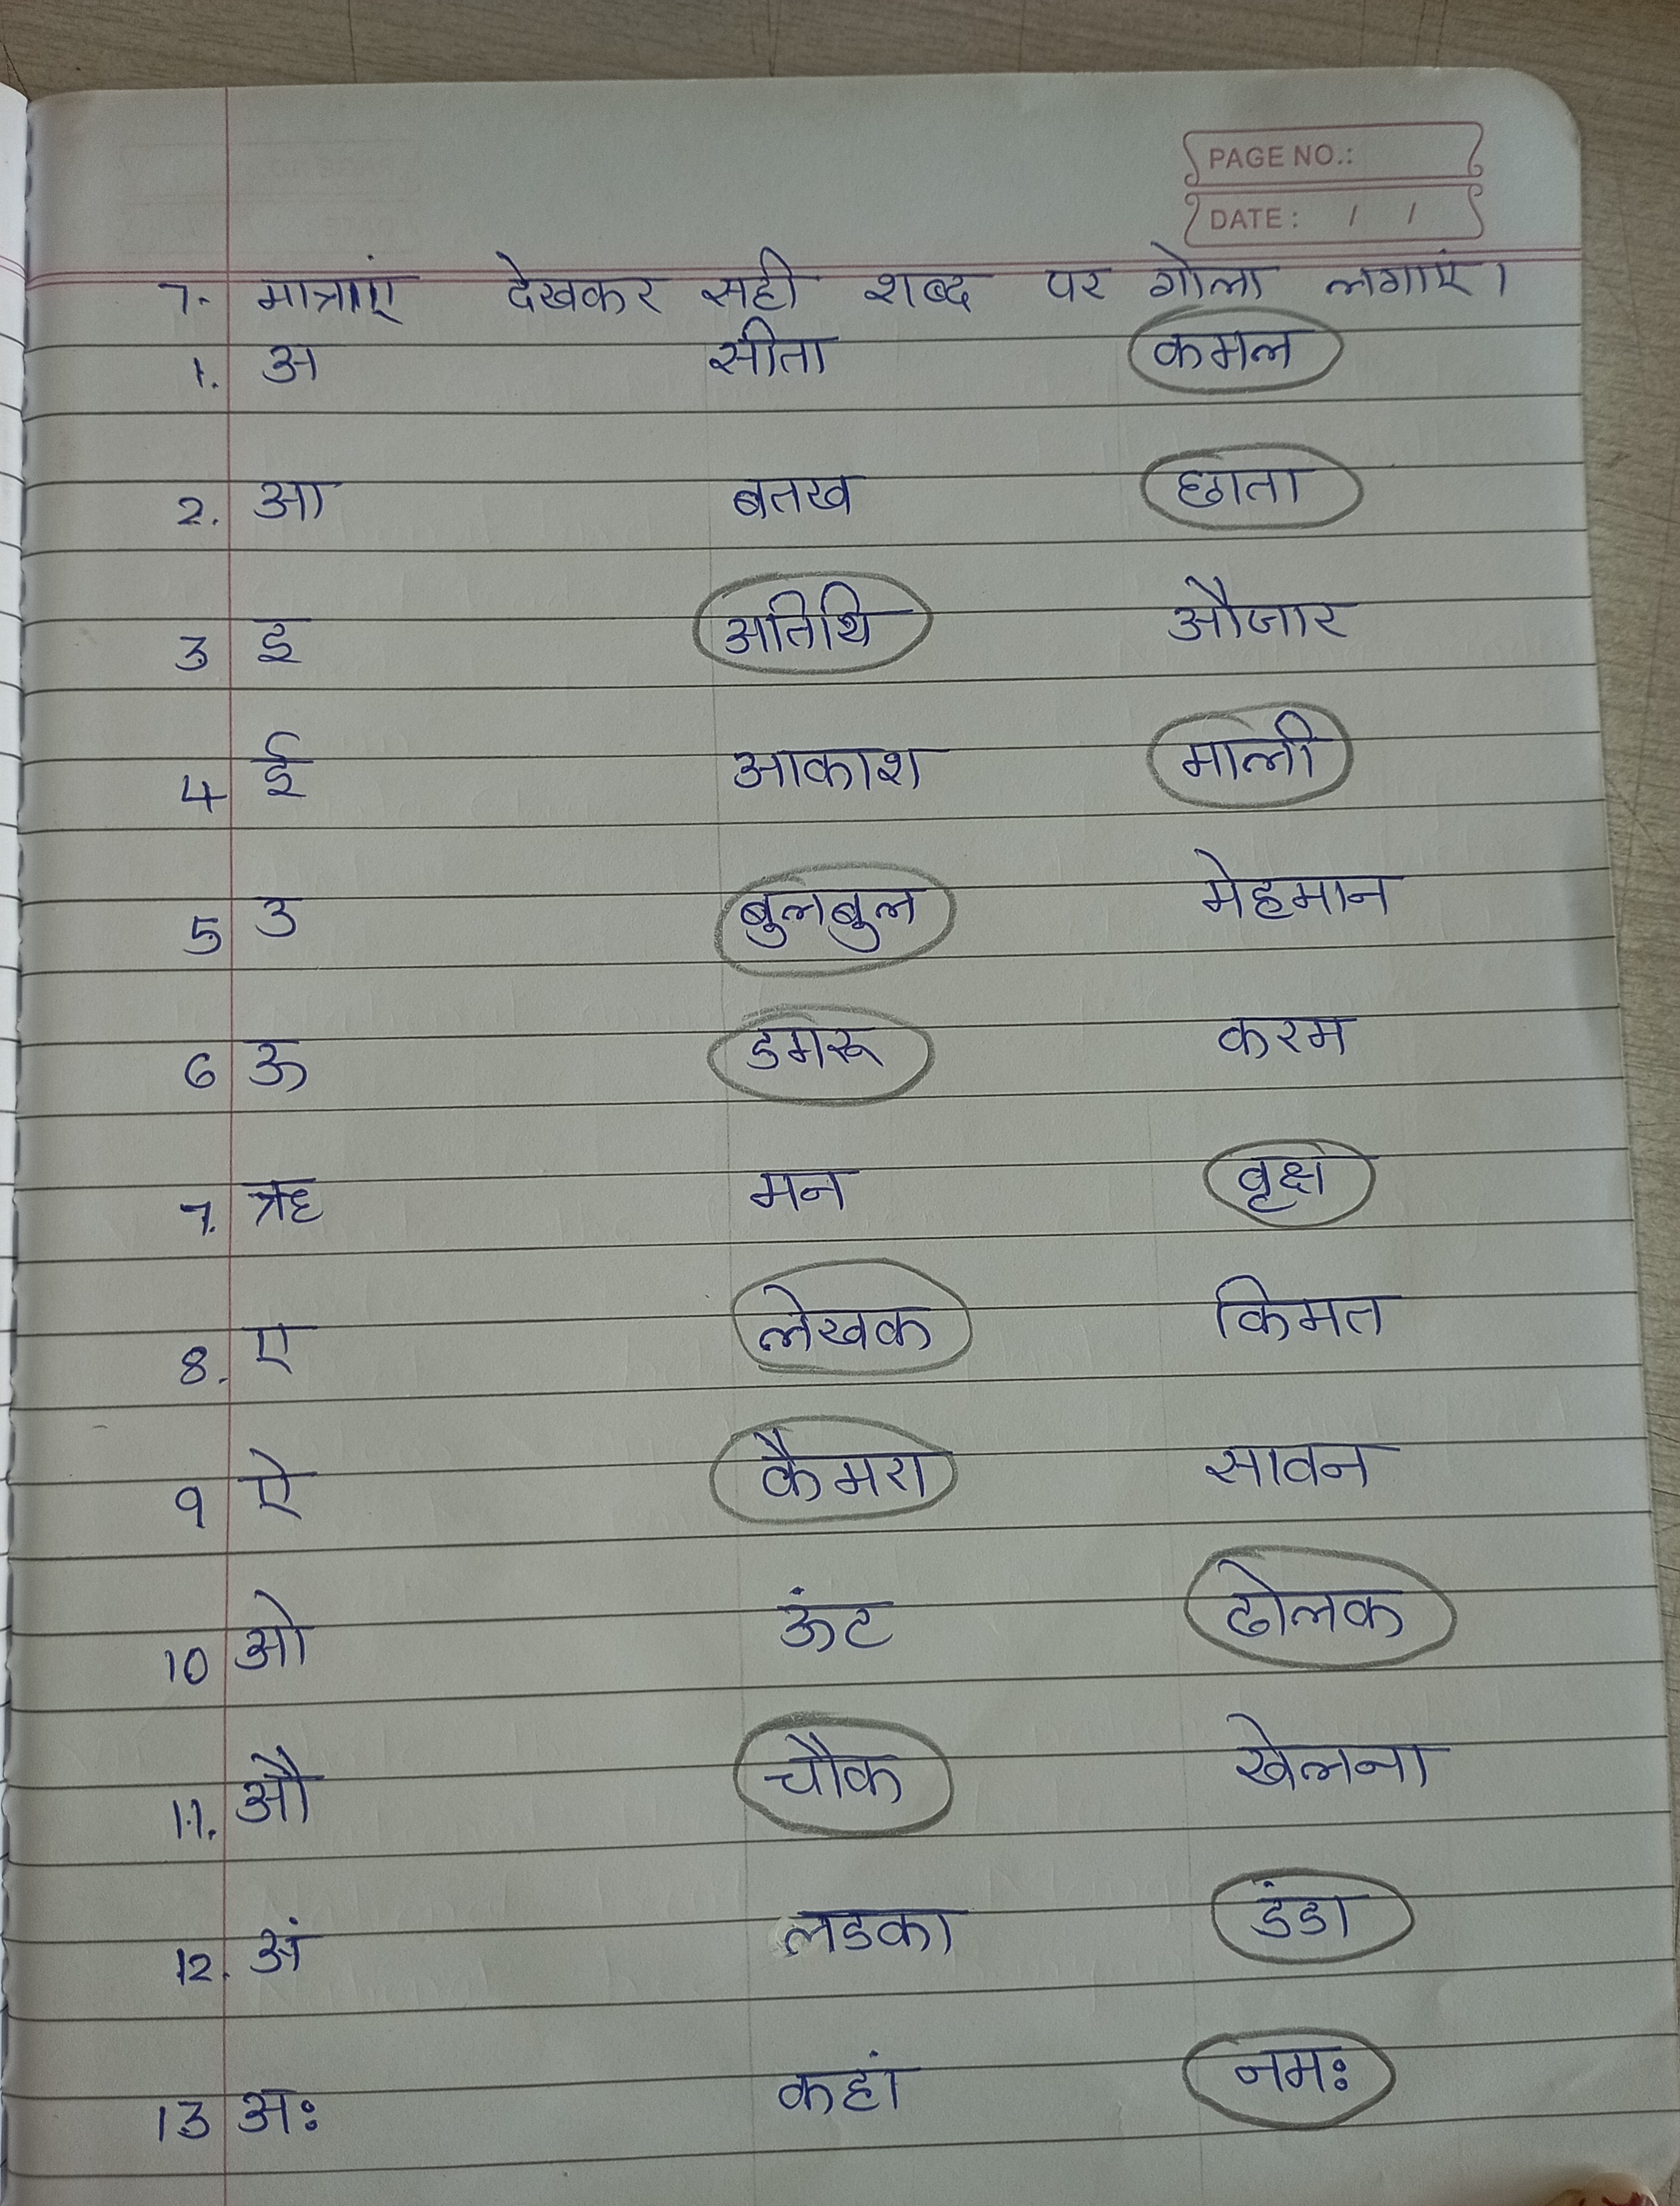 PAGE NO.:
DATE: / /
7. मात्राएं देखकर सही शब्द पर गोला लगाएं।
1. अ सीता कमल
2. आ बतख छाता
3 इ अतिथि औजार
4 ई आकाश माली
5 उ बुलबुल मेहमान
6 ऊ डमरू करम
7. ऋ मन वृक्ष
8. ए लेखक किमत
9 ऐ कैमरा सावन
10 ओ ऊंट ढोलक
11. औ चौक खेलना
12. अं लडका डंडा
13 अः कहां नमः